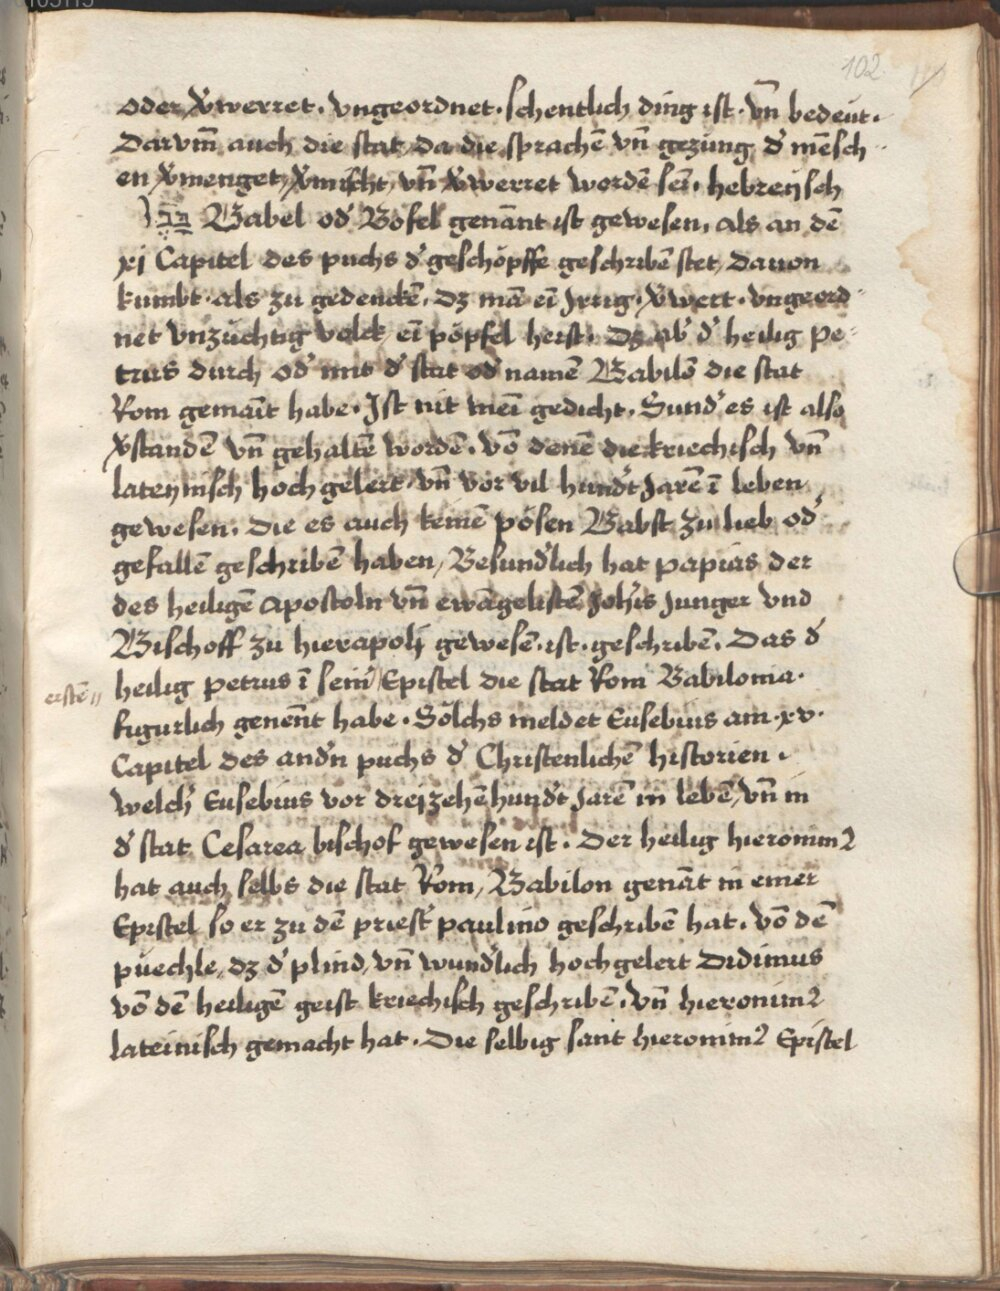 102
oder v̄werret. vngeordnet. schentlich ding ist. vn̄ bedeüt.
Darvm̄ auch die stat, da die sprachē vn̄ gezüng d' mēsch
en v̄menget, v̄mischt, vn̄ v̄werret wordē sei. hebreijsch
בבל Babel od' Bofel genān̄t ist gewesen, als an dē
xj Capitel des puchs d' geschöpffe geschribē stet, dauon
kumbt. als zu gedenckē. dz mā eī jrrig. v̄wert. vngeord-
net vnzüchtig volck, eī pöpfel heist. Dz ab' d' heilig Pe-
trus durch od' mit d' stat od' namē Babilō die stat
Rom gemaīt habe. Ist nit meī gedicht. Sund' es ist also
v̄standē vn̄ gehaltē wordē. vō denē die kriechisch vn̄
lateÿnisch hoch gelert, vn̄ vor vil hund't Jarē ī leben
gewesen. die es auch keinē pösen Babst zu lieb od'
gefallē geschribē haben, Besund'lich hat papias der
des heiligē apostoln vn̄ ewāgelistē Joh'is Junger vnd
Bischoff zu hierapolj gewesē. ist. geschribē. Das d'
erstē
heilig petrus ī sein' Epistel die stat Rom Babilonia.
figurlich genen̄t habe. Sölchs meldet Eusebius am. xv.
Capitel des and'n puchs d' Christenlichē historien.
welch' Eusebius vor dreijzehē hund't Jarē in lebē, vn̄ in
d' stat Cesarea bischof gewesen ist. Der heilig hieronim9
hat auch selbs die stat Rom, Babilon genāt in einer
Epistel so er zu dē priest' paulino geschribē hat. vō dē
püechle, dz d' plind, vn̄ wund'lich hochgelert Didimus
vō dē heiligē geist kriechisch geschribē. vn̄ hieronim9
lateinisch gemacht hat. Die selbig sant hieronim9 Epistel